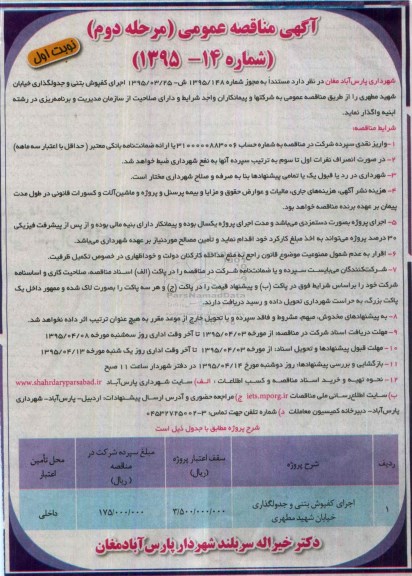 آگهی مناقصه عمومی (مرحله دوم)
(شماره ۱۴- ۱۳۹۵)
نوبت اول
شهرداری پارس‌آباد مغان در نظر دارد مستنداً به مجوز شماره ۱۳۹۵/۱۴۸ ش- ۱۳۹۵/۰۳/۲۵ اجرای کفپوش بتنی و جدولگذاری خیابان
شهید مطهری را از طریق مناقصه عمومی به شرکتها و پیمانکاران واجد شرایط و دارای صلاحیت از سازمان مدیریت و برنامه‌ریزی در رشته
ابنیه واگذار نماید.
شرایط مناقصه:
۱-واریز نقدی سپرده شرکت در مناقصه به شماره حساب ۳۱۰۰۰۰۰۸۸۳۰۰۶ یا ارائه ضمانت‌نامه بانکی معتبر (حداقل با اعتبار سه ماهه)
۲- در صورت انصراف نفرات اول تا سوم به ترتیب سپرده آنها به نفع شهرداری ضبط خواهد شد.
۳- شهرداری در رد یا قبول یک یا تمامی پیشنهادها بنا به صرفه و صلاح شهرداری مختار است.
۴- هزینه نشر آگهی، هزینه‌های جاری، مالیات و عوارض حقوق و مزایا و بیمه پرسنل و پروژه و ماشین‌آلات و کسورات قانونی در طول مدت
پیمان بر عهده برنده مناقصه خواهد بود.
۵- اجرای پروژه بصورت دستمزدی می‌باشد و مدت اجرای پروژه یکسال بوده و پیمانکار دارای بنیه مالی بوده و از پس از پیشرفت فیزیکی
۳۰ درصد پروژه می‌تواند به اخذ مبلغ کارکرد خود اقدام نماید و تامین مصالح موردنیاز بر عهده شهرداری می‌باشد.
۶- اقرار به عدم شمول ممنوعیت موضوع قانون راجع به منع مداخله کارکنان دولت و خوداظهاری در خصوص تکمیل ظرفیت.
۷- شرکت‌کنندگان می‌بایست سپرده و یا ضمانت‌نامه شرکت در مناقصه را در پاکت (الف) اسناد مناقصه، صلاحیت کاری و اساسنامه
شرکت خود را بر اساس شرایط فوق در پاکت (ب) و پیشنهاد قیمت را در پاکت (ج) و هر سه پاکت را بصورت لاک شده و ممهور داخل یک
پاکت بزرگ، به حراست شهرداری تحویل داده و رسید دریافت دارند.
۸- به پیشنهادهای مخدوش، مبهم، مشروط و فاقد سپرده و یا تحویل خارج از موعد مقرر به هیچ عنوان ترتیب اثر داده نخواهد شد.
۹- مهلت دریافت اسناد شرکت در مناقصه: از مورخه ۱۳۹۵/۰۴/۰۳ تا آخر وقت اداری روز سه‌شنبه مورخه ۱۳۹۵/۰۴/۰۸
۱۰- مهلت قبول پیشنهادها و تحویل اسناد: از مورخه ۱۳۹۵/۰۴/۰۳ تا آخر وقت اداری روز یک شنبه مورخه ۱۳۹۵/۰۴/۱۳
۱۱- بازگشایی و بررسی پیشنهادها: روز دوشنبه مورخ ۱۳۹۵/۰۴/۱۴ در دفتر شهردار ساعت ۱۱ صبح
۱۲- نحوه تهیه و خرید اسناد مناقصه و کسب اطلاعات: الف) سایت شهرداری پارس‌آباد www.shahrdaryparsabad.ir
ب) سایت اطلاع‌رسانی ملی مناقصات iets.mporg.ir ج) مراجعه حضوری و آدرس ارسال پیشنهادات: اردبیل- پارس‌آباد- شهرداری
پارس‌آباد- دبیرخانه کمیسیون معاملات د) شماره تلفن جهت تماس: ۳-۰۴۵۳۲۷۲۵۰۰۲
شرح پروژه مطابق با جدول ذیل است
ردیف شرح پروژه سقف اعتبار پروژه (ریال) مبلغ سپرده شرکت در مناقصه (ریال) محل تأمین اعتبار
۱ اجرای کفپوش بتنی و جدولگذاری خیابان شهید مطهری ۳/۵۰۰/۰۰۰/۰۰۰ ۱۷۵/۰۰۰/۰۰۰ داخلی
دکتر خیراله سربلند شهردار پارس آباد مغان